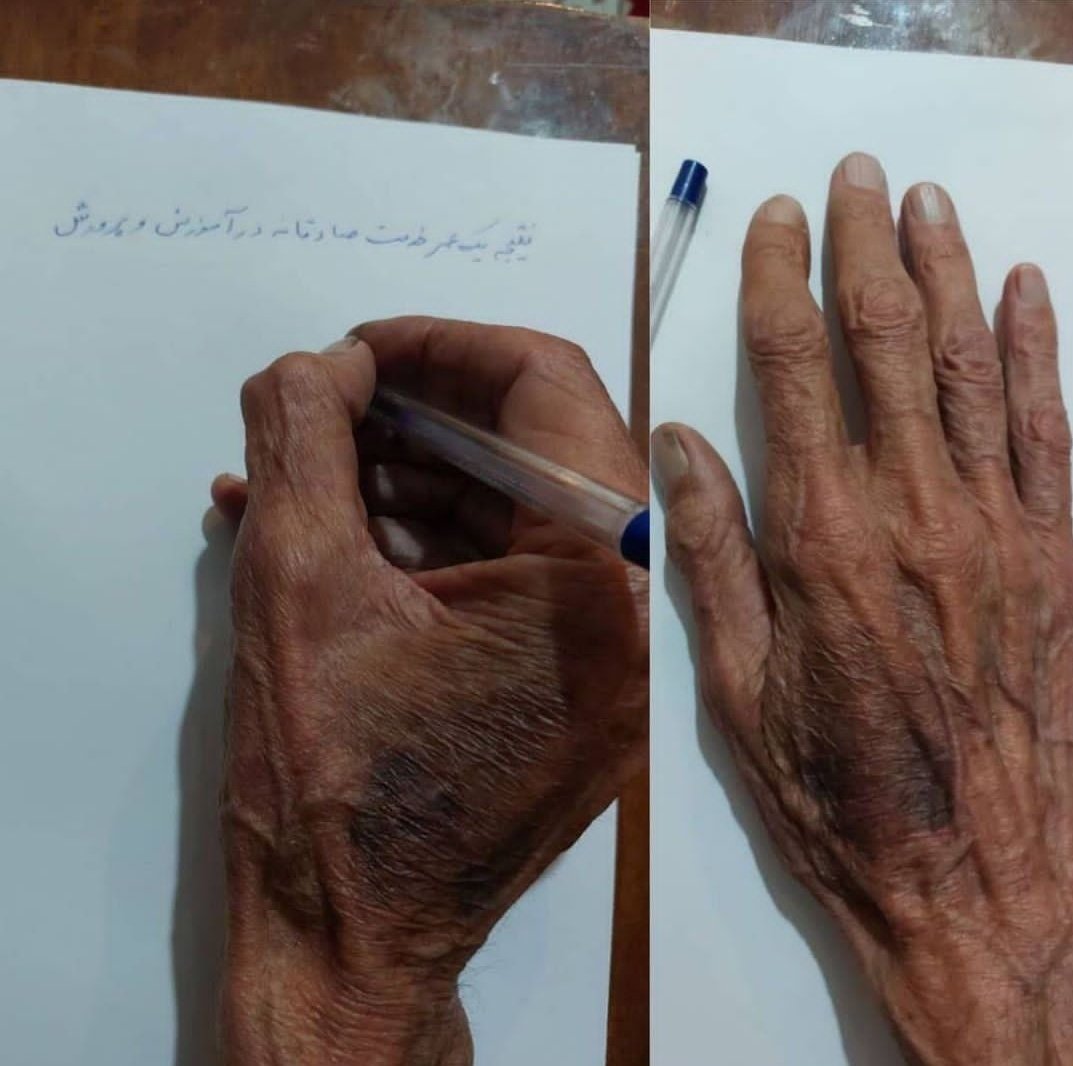 نتیجه یک عمر خدمت صادقانه در آموزش و پرورش